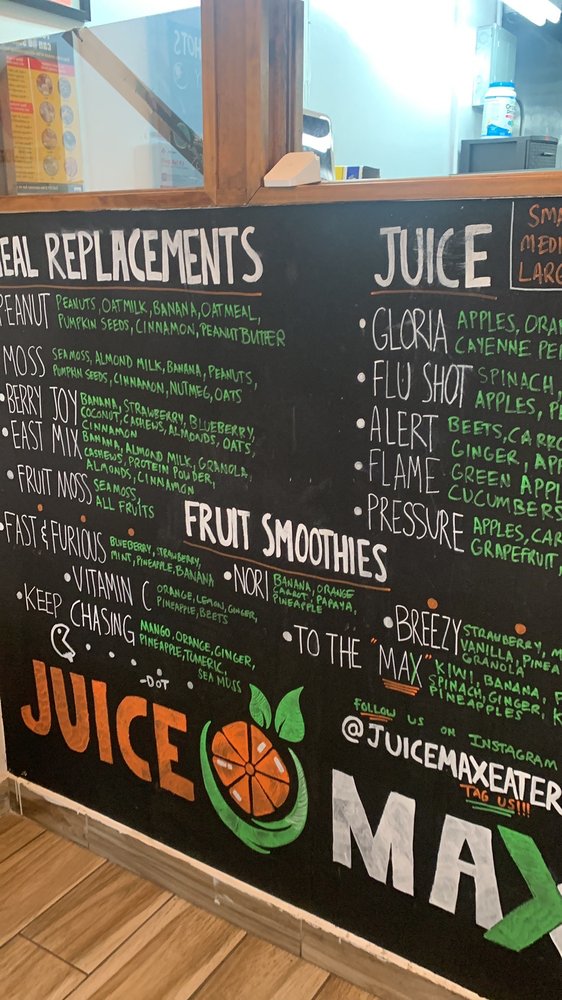 HOTS
EAL REPLACEMENTS
PEANUT PEANUTS, OATMILK, BANANA, OATMEAL,
PUMPKIN SEEDS, CINNAMON, PEANUT BUTTER
MOSS SEAMOSS, ALMOND MILK, BANANA, PEANUTS,
PUMPKIN SEEDS, CINNAMON, NUTMEG, OATS
•BERRY JOY BANANA, STRAWBERRY, BLUEBERRY,
COCONUT, CASHEWS, ALMONDS, OATS,
CINNAMON
•EAST MIX BANANA, ALMOND MILK, GRANOLA,
CASHEWS, PROTEIN POWDER,
ALMONDS, CINNAMON
•FRUIT MOSS SEAMOSS,
ALL FRUITS
JUICE
SMA
MEDI
LARG
•GLORIA APPLES, ORAN
CAYENNE PE
•FLU SHOT SPINACH,
APPLES, PE
•ALERT BEETS, CARRO
GINGER, APP
•FLAME GREEN APPL
CUCUMBERS
•PRESSURE APPLES, CAR
GRAPEFRUIT,
FRUIT SMOOTHIES
•FAST & FURIOUS BLUEBERRY, STRAWBERRY,
MINT, PINEAPPLE, BANANA
•VITAMIN C ORANGE, LEMON, GINGER,
PINEAPPLE, BEETS
•KEEP CHASING MANGO, ORANGE, GINGER,
PINEAPPLE, TUMERIC,
SEA MOSS
-DOT
•NORI BANANA, ORANGE
CARROT, PAPAYA,
PINEAPPLE
•BREEZY STRAWBERRY, M
VANILLA, PINEA
GRANOLA
•TO THE "MAX" KIWI, BANANA, P
SPINACH, GINGER, K
PINEAPPLES
FOLLOW US ON INSTAGRAM
@JUICEMAXEATER
TAG US!!!
JUICE
MAX